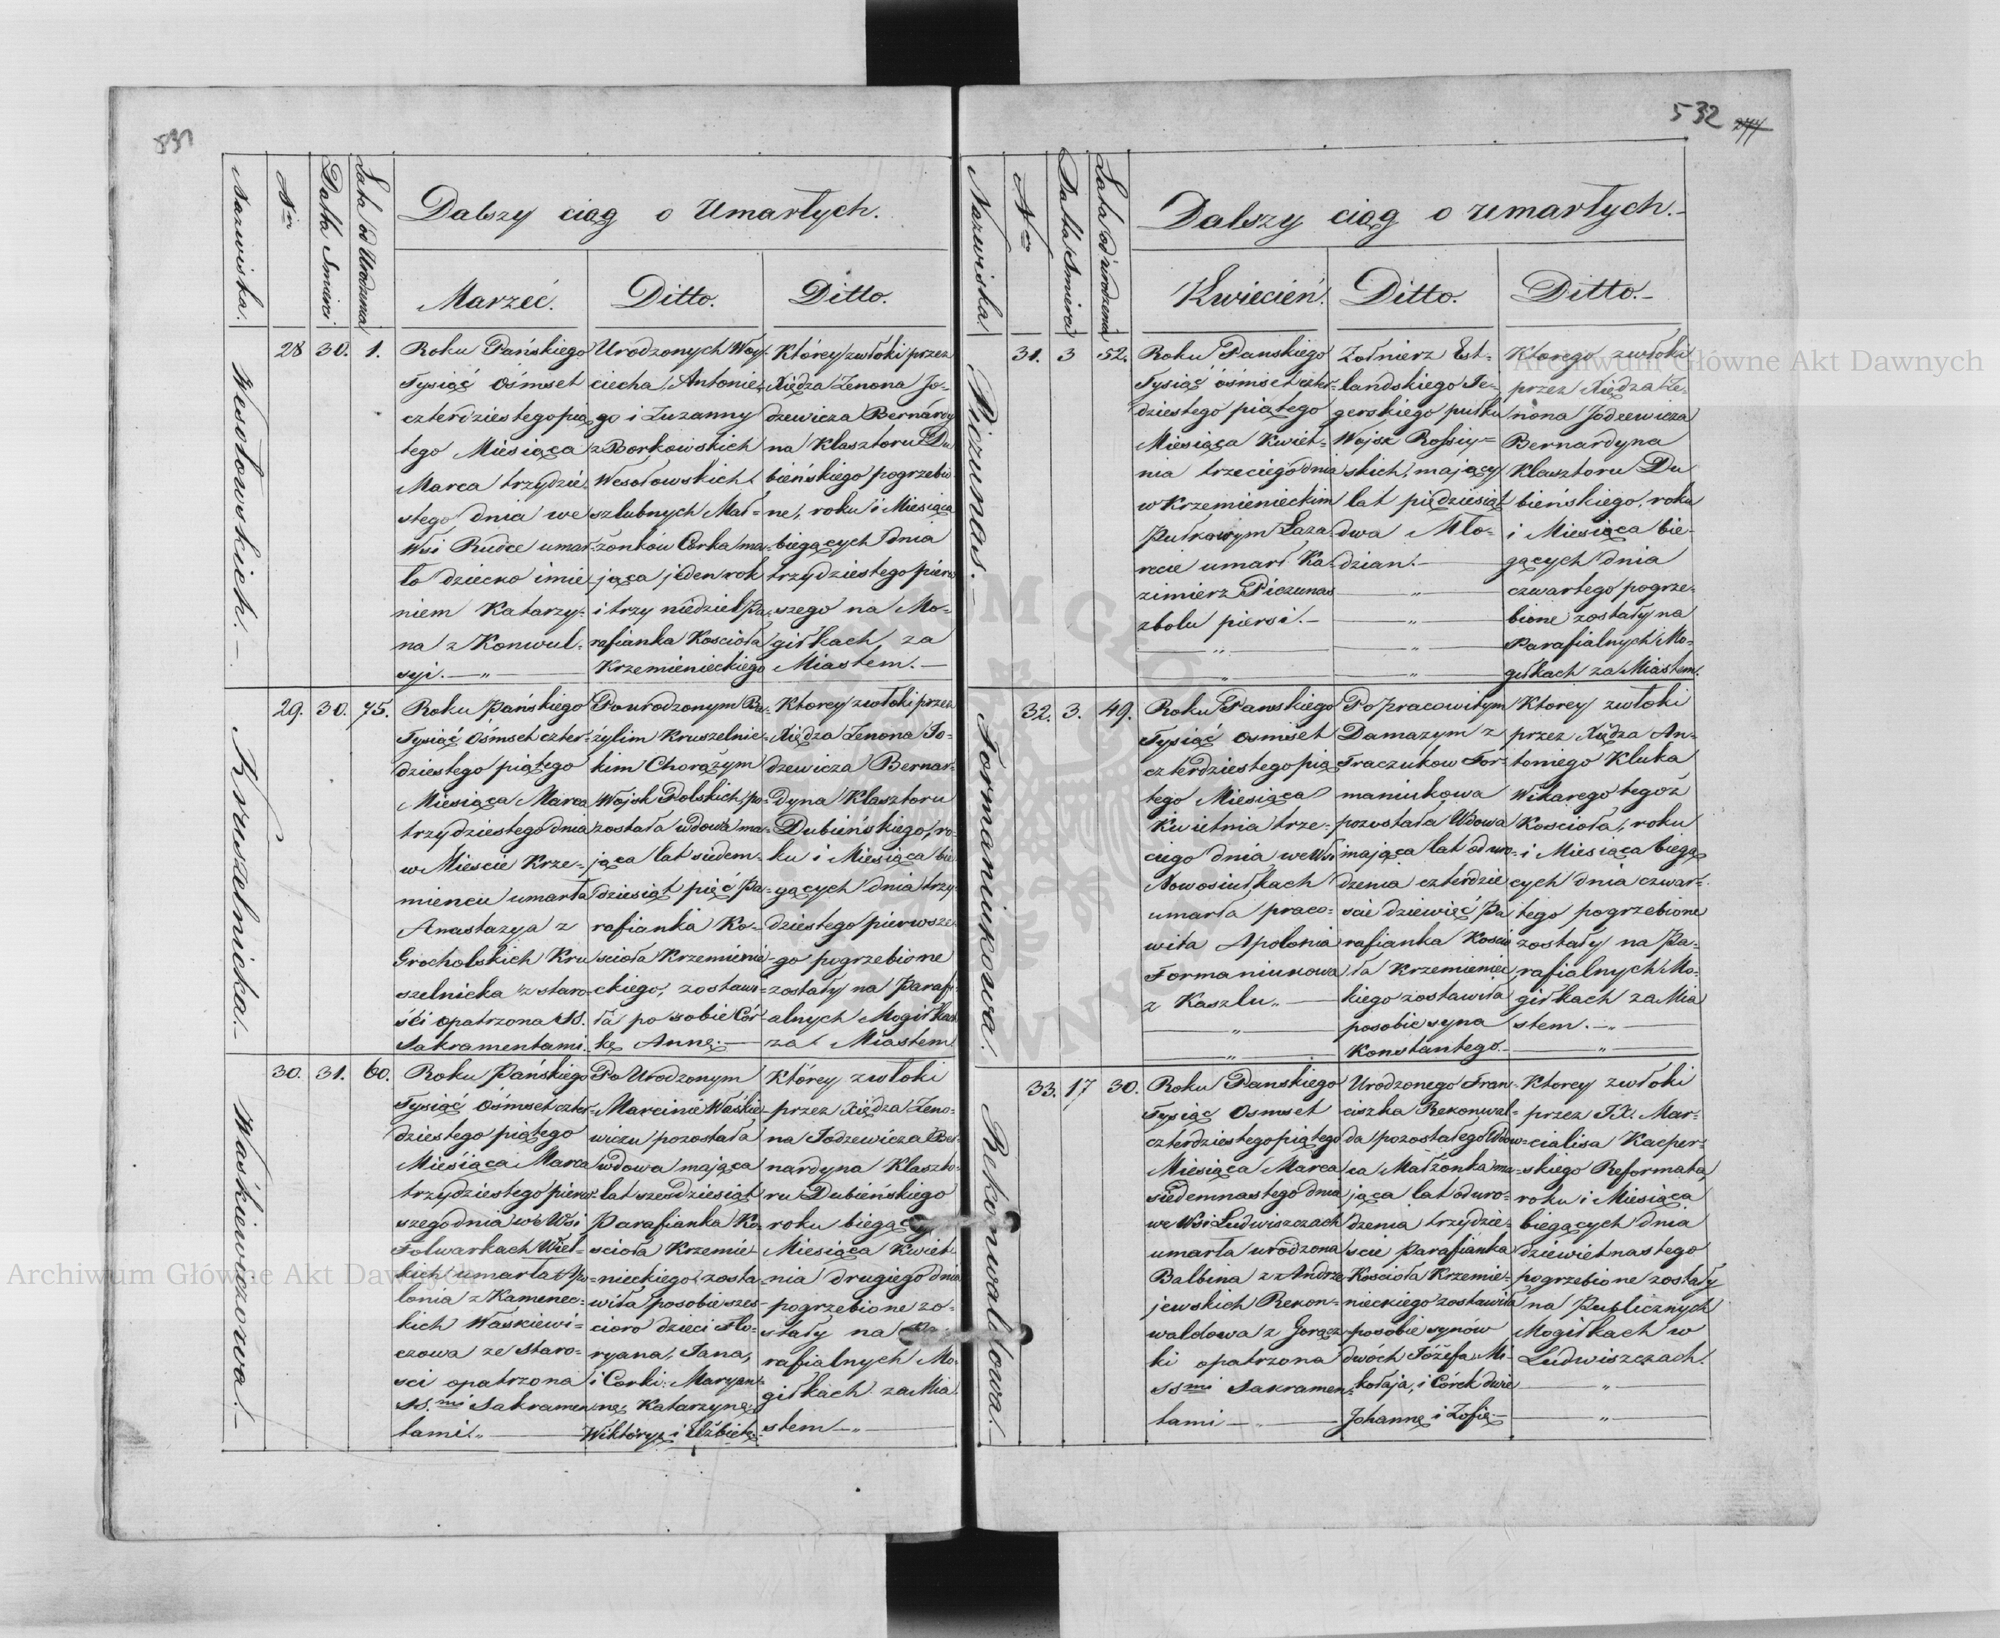 531
Nazwiska.
Nro
Datta Smierci
Lata od Urodzenia
Dalszy ciąg o Umarłych.
Marzec.
Ditto.
Ditto.
Wesołowskich.
28
30.
1.
Roku Pańskiego
Tysiąć Ośmset
czterdziestego pią
tego Miesiąca
Marca trzydzie
stego dnia we
Wsi Rudce umar
ło dziecko imie
niem Katarzy-
na z Konwul-
syi.
Urodzonych Woy-
ciecha, Antonie
go i Zuzanny
z Borkowskich
Wesołowskich
szlubnych Mał-
żonków Córka ma
jąca jeden rok
i trzy niedziel Pa
rafianka Koscioła
Krzemienieckiego
Którey zwłoki przez
Xiędza Zenona Jo-
dzewicza Bernardy
na Klasztoru Du
bieńskiego pogrzebio
ne, roku i Miesiąca
biegących dnia
trzydziestego pierw
szego na Mo-
giłkach za
Miastem.
Kruszelnicka.
29.
30.
75.
Roku Pańskiego
Tysiąć Ośmset czter-
dziestego piątego
Miesiąca Marca
trzydziestego dnia
w Miescie Krze-
mieńcu umarła
Anastazya z
Grocholskich Kru
szelnicka z staro-
ści opatrzona SS.
Sakramentami.
Po urodzonym Ba-
zylim Kruszelnic-
kim Chorążym
Wojsk Polskich po-
została wdowa ma-
jąca lat siedem-
dziesiąt pięć Pa-
rafianka Ko-
scioła Krzemienie
ckiego, zostawi-
ła po sobie Cór-
kę Annę.
Ktorey zwłoki przez
Xiędza Zenona Jo-
dzewicza Bernar-
dyna Klasztoru
Dubieńskiego, ro-
ku i Miesiąca bie
gących dnia trzy
dziestego pierwsze
go pogrzebione
zostały na Parafi-
alnych Mogiłkach
za Miastem.
Waśkiewiczowa.
30.
31.
60.
Roku Pańskiego
Tysiąć Ośmset czter-
dziestego piątego
Miesiąca Marca
trzydziestego pierw-
szego dnia we Wsi
Folwarkach Wiel-
kich umarła Apo-
lonia z Kamenec-
kich Waskiewi-
czowa ze staro-
sci opatrzona
SS.mi Sakramen
tami.
Po Urodzonym
Marcinie Waśkie-
wiczu pozostała
wdowa mająca
lat sześdziesiąt
Parafianka Ko-
scioła Krzemie
nieckiego, zosta
wiła posobie szes-
cioro dzieci Flo-
ryana, Jana,
i Corki: Maryan-
nę, Katarzynę
Wiktoryę i Elżbietę.
Którey zwłoki
przez Xiędza Zeno-
na Jodzewicza Ber-
nardyna Klaszto-
ru Dubieńskiego
roku biegącego
Miesiąca Kwiet
nia drugiego dnia
pogrzebione zo-
stały na Pa-
rafialnych Mo-
giłkach za Mia
stem
532
Nazwiska.
Nro
Datta Smierci
Lata od urodzenia
Dalszy ciąg o umarłych.
Kwiecień.
Ditto.
Ditto.
Piczunas.
31.
3
52.
Roku Panskiego
Tysiąć ośmset czter-
dziestego piątego
Miesiąca Kwiet-
nia trzeciego dnia
w Krzemienieckim
Pułkowym Laza-
recie umarł Ka-
zimierz Piczunas
z bolu piersi.
Żołnierz Est-
landskiego Je-
gerskiego pułku
Wojsk Rossiy-
skich, mający
lat pięćdziesiąt
dwa Mło-
dzian.
Ktorego zwłoki
przez Xiędza Ze-
nona Jodzewicza
Bernardyna
Klasztoru Du
bieńskiego, roku
i Miesiąca bie-
gących dnia
czwartego pogrze-
bione zostały na
Parafialnych Mo-
giłkach za Miastem.
Formaniukowa.
32.
3.
49.
Roku Panskiego
Tysiąć osmset
czterdziestego pią
tego Miesiąca
Kwietnia trze-
ciego dnia we Wsi
Nowosiułkach
umarła praco-
wita Apolonia
Formaniukowa
z Kaszlu.
Po pracowitym
Damazym z
Traczukow For-
maniukowa
pozostała Wdowa
mająca lat od uro-
dzenia czterdzie
scie dziewięć Pa
rafianka Koscio
ła Krzemieniec
kiego zostawiła
posobie syna
Konstantego.
Ktorey zwłoki
przez Xiędza An-
toniego Kluka
Wikarego tegoż
Koscioła, roku
i Miesiąca biegą
cych dnia czwar-
tego pogrzebione
zostały na Pa-
rafialnych Mo-
giłkach za Mia
stem.
Rekonwaldowa.
33.
17
30.
Roku Panskiego
Tysiąc Osmset
czterdziestego piątego
Miesiąca Marca
siedemnastego dnia
we Wsi Ludwiszczach
umarła urodzona
Balbina z Andrze
jewskich Rekon-
waldowa z Gorącz
ki opatrzona
SSmi Sakramen
tami
Urodzonego Fran-
ciszka Rekonwal-
da pozostałego Wdow-
ca Małżonka ma-
jąca lat od uro-
dzenia trzydzie-
scie Parafianka
Kościoła Krzemie-
nieckiego zostawiła
posobie synów
dwóch Józefa, Mi-
kołaja, i Córek dwie
Johannę i Zofię
Ktorey zwłoki
przez JX. Mar-
cialisa Kacper-
skiego Reformata,
roku i Miesiąca
biegących dnia
dziewietnastego
pogrzebione zostały
na Publicznych
Mogiłkach w
Ludwiszczach.
Archiwum Główne Akt Dawnych
Archiwum Główne Akt Dawnych